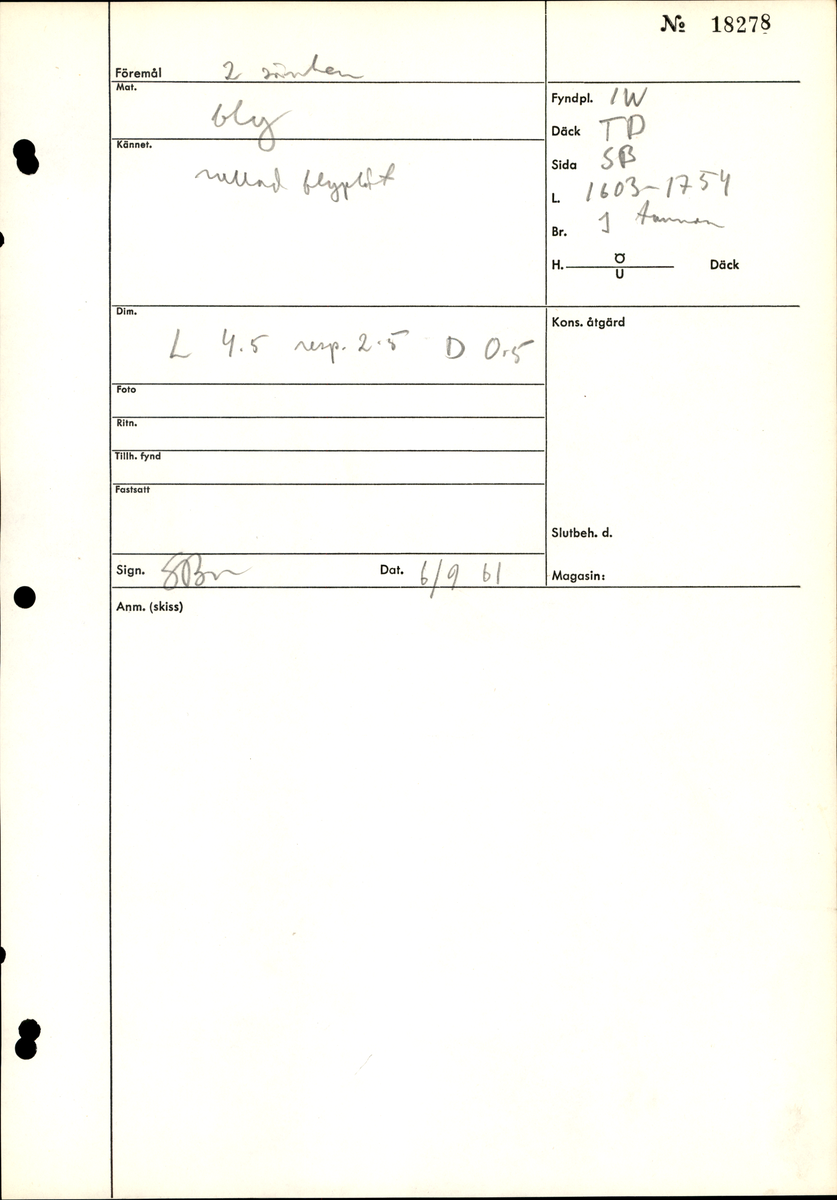 № 18278
Föremål 2 sänken
Mat. bly
Kännet. rullad blyplåt
Fyndpl. IW
Däck TD
Sida SB
L. 1603-1754
Br. J
H. Ö/U Däck
Dim. L 4.5 resp. 2.5 D 0.5
Foto
Ritn.
Tillh. fynd
Fastsatt
Kons. åtgärd
Slutbeh. d.
Sign. SBm Dat. 6/9 61
Magasin:
Anm. (skiss)